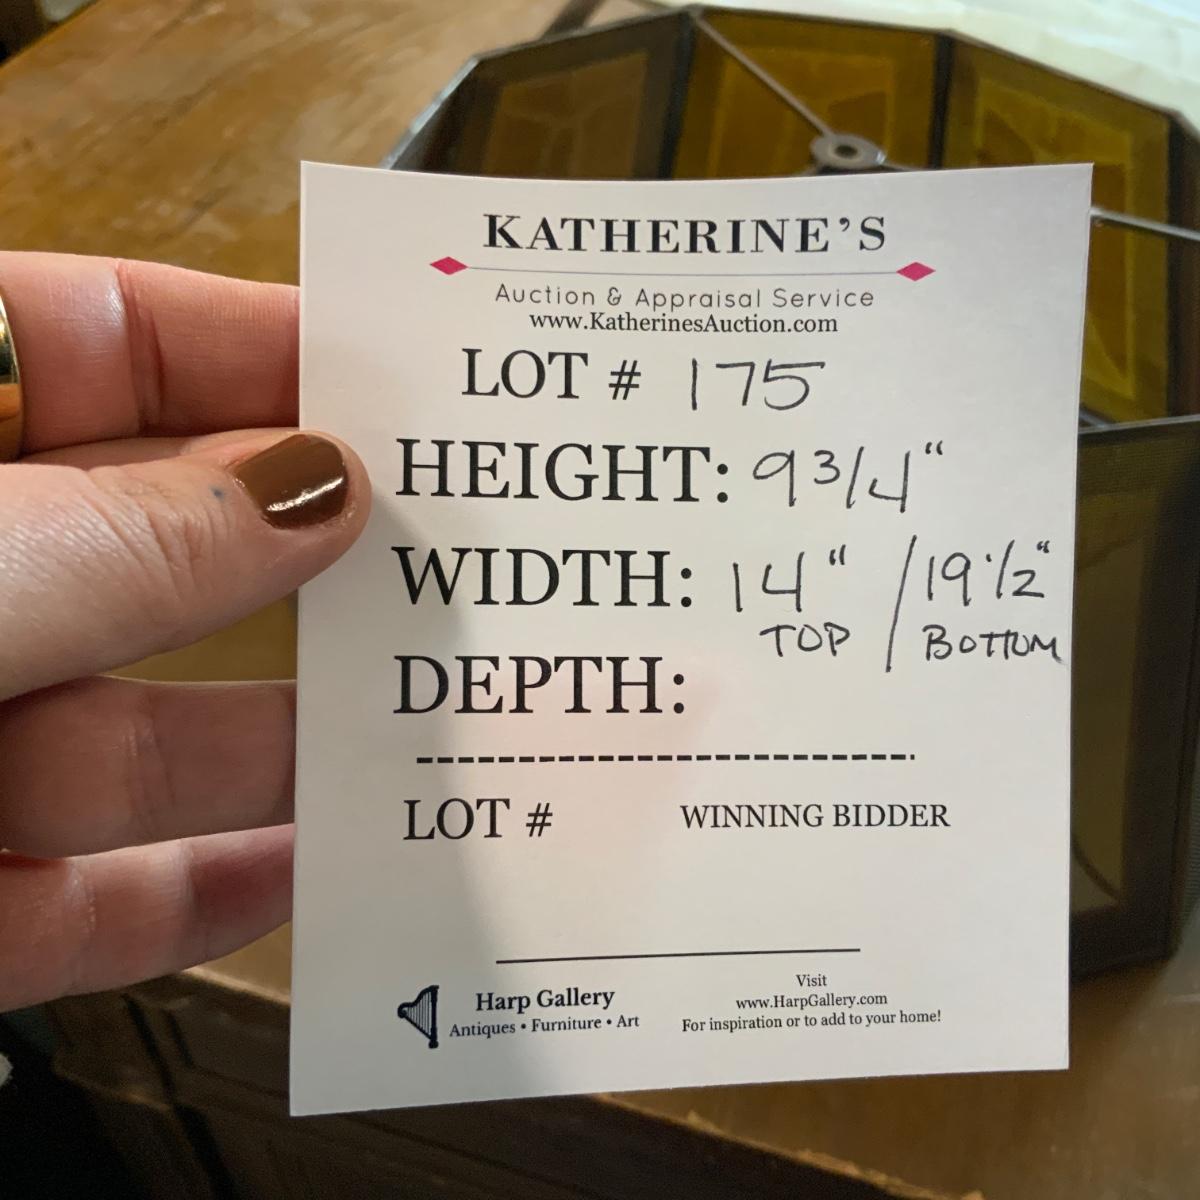 KATHERINE'S
Auction & Appraisal Service
www.KatherinesAuction.com
LOT # 175
HEIGHT: 9 3/4"
WIDTH: 14" / 19 1/2"
TOP BOTTOM
DEPTH:
LOT # WINNING BIDDER
Harp Gallery
Antiques • Furniture • Art
Visit
www.HarpGallery.com
For inspiration or to add to your home!